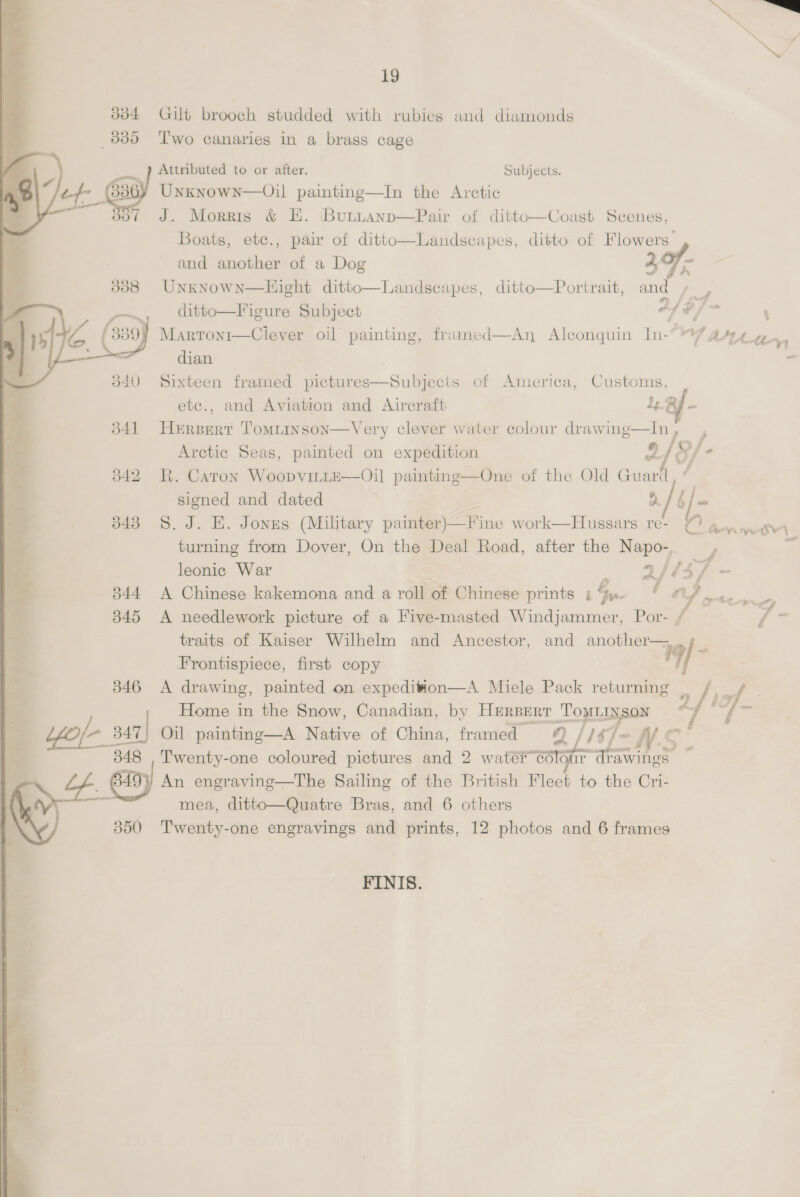 19
334 Gilt brooch studded with rubies and diamonds
335 Two canaries in a brass cage
Attributed to or after. Subjects.
336 Unknown—Oil painting—In the Arctic
337 J. Morris & E. Bulland—Pair of ditto—Coast Scenes,
Boats, etc., pair of ditto—Landscapes, ditto of Flowers
and another of a Dog
338 Unknown—Eight ditto—Landscapes, ditto—Portrait, and
ditto—Figure Subject
339 Martoni—Clever oil painting, framed—An Alconquin In-
dian
340 Sixteen framed pictures—Subjects of America, Customs,
etc., and Aviation and Aircraft
341 Herbert Tomlinson—Very clever water colour drawing—In
Arctic Seas, painted on expedition
342 R. Caton Woodville—Oil painting—One of the Old Guard,
signed and dated
343 S. J. E. Jones (Military painter)—Fine work—Hussars re-
turning from Dover, On the Deal Road, after the Napo-
leonic War
344 A Chinese kakemona and a roll of Chinese prints
345 A needlework picture of a Five-masted Windjammer, Por-
traits of Kaiser Wilhelm and Ancestor, and another—
Frontispiece, first copy
346 A drawing, painted on expedition—A Miele Pack returning
Home in the Snow, Canadian, by Herbert Tomlinson
347 Oil painting—A Native of China, framed
348 Twenty-one coloured pictures and 2 water colour drawings
349 An engraving—The Sailing of the British Fleet to the Cri-
mea, ditto—Quatre Bras, and 6 others
350 Twenty-one engravings and prints, 12 photos and 6 frames
FINIS.